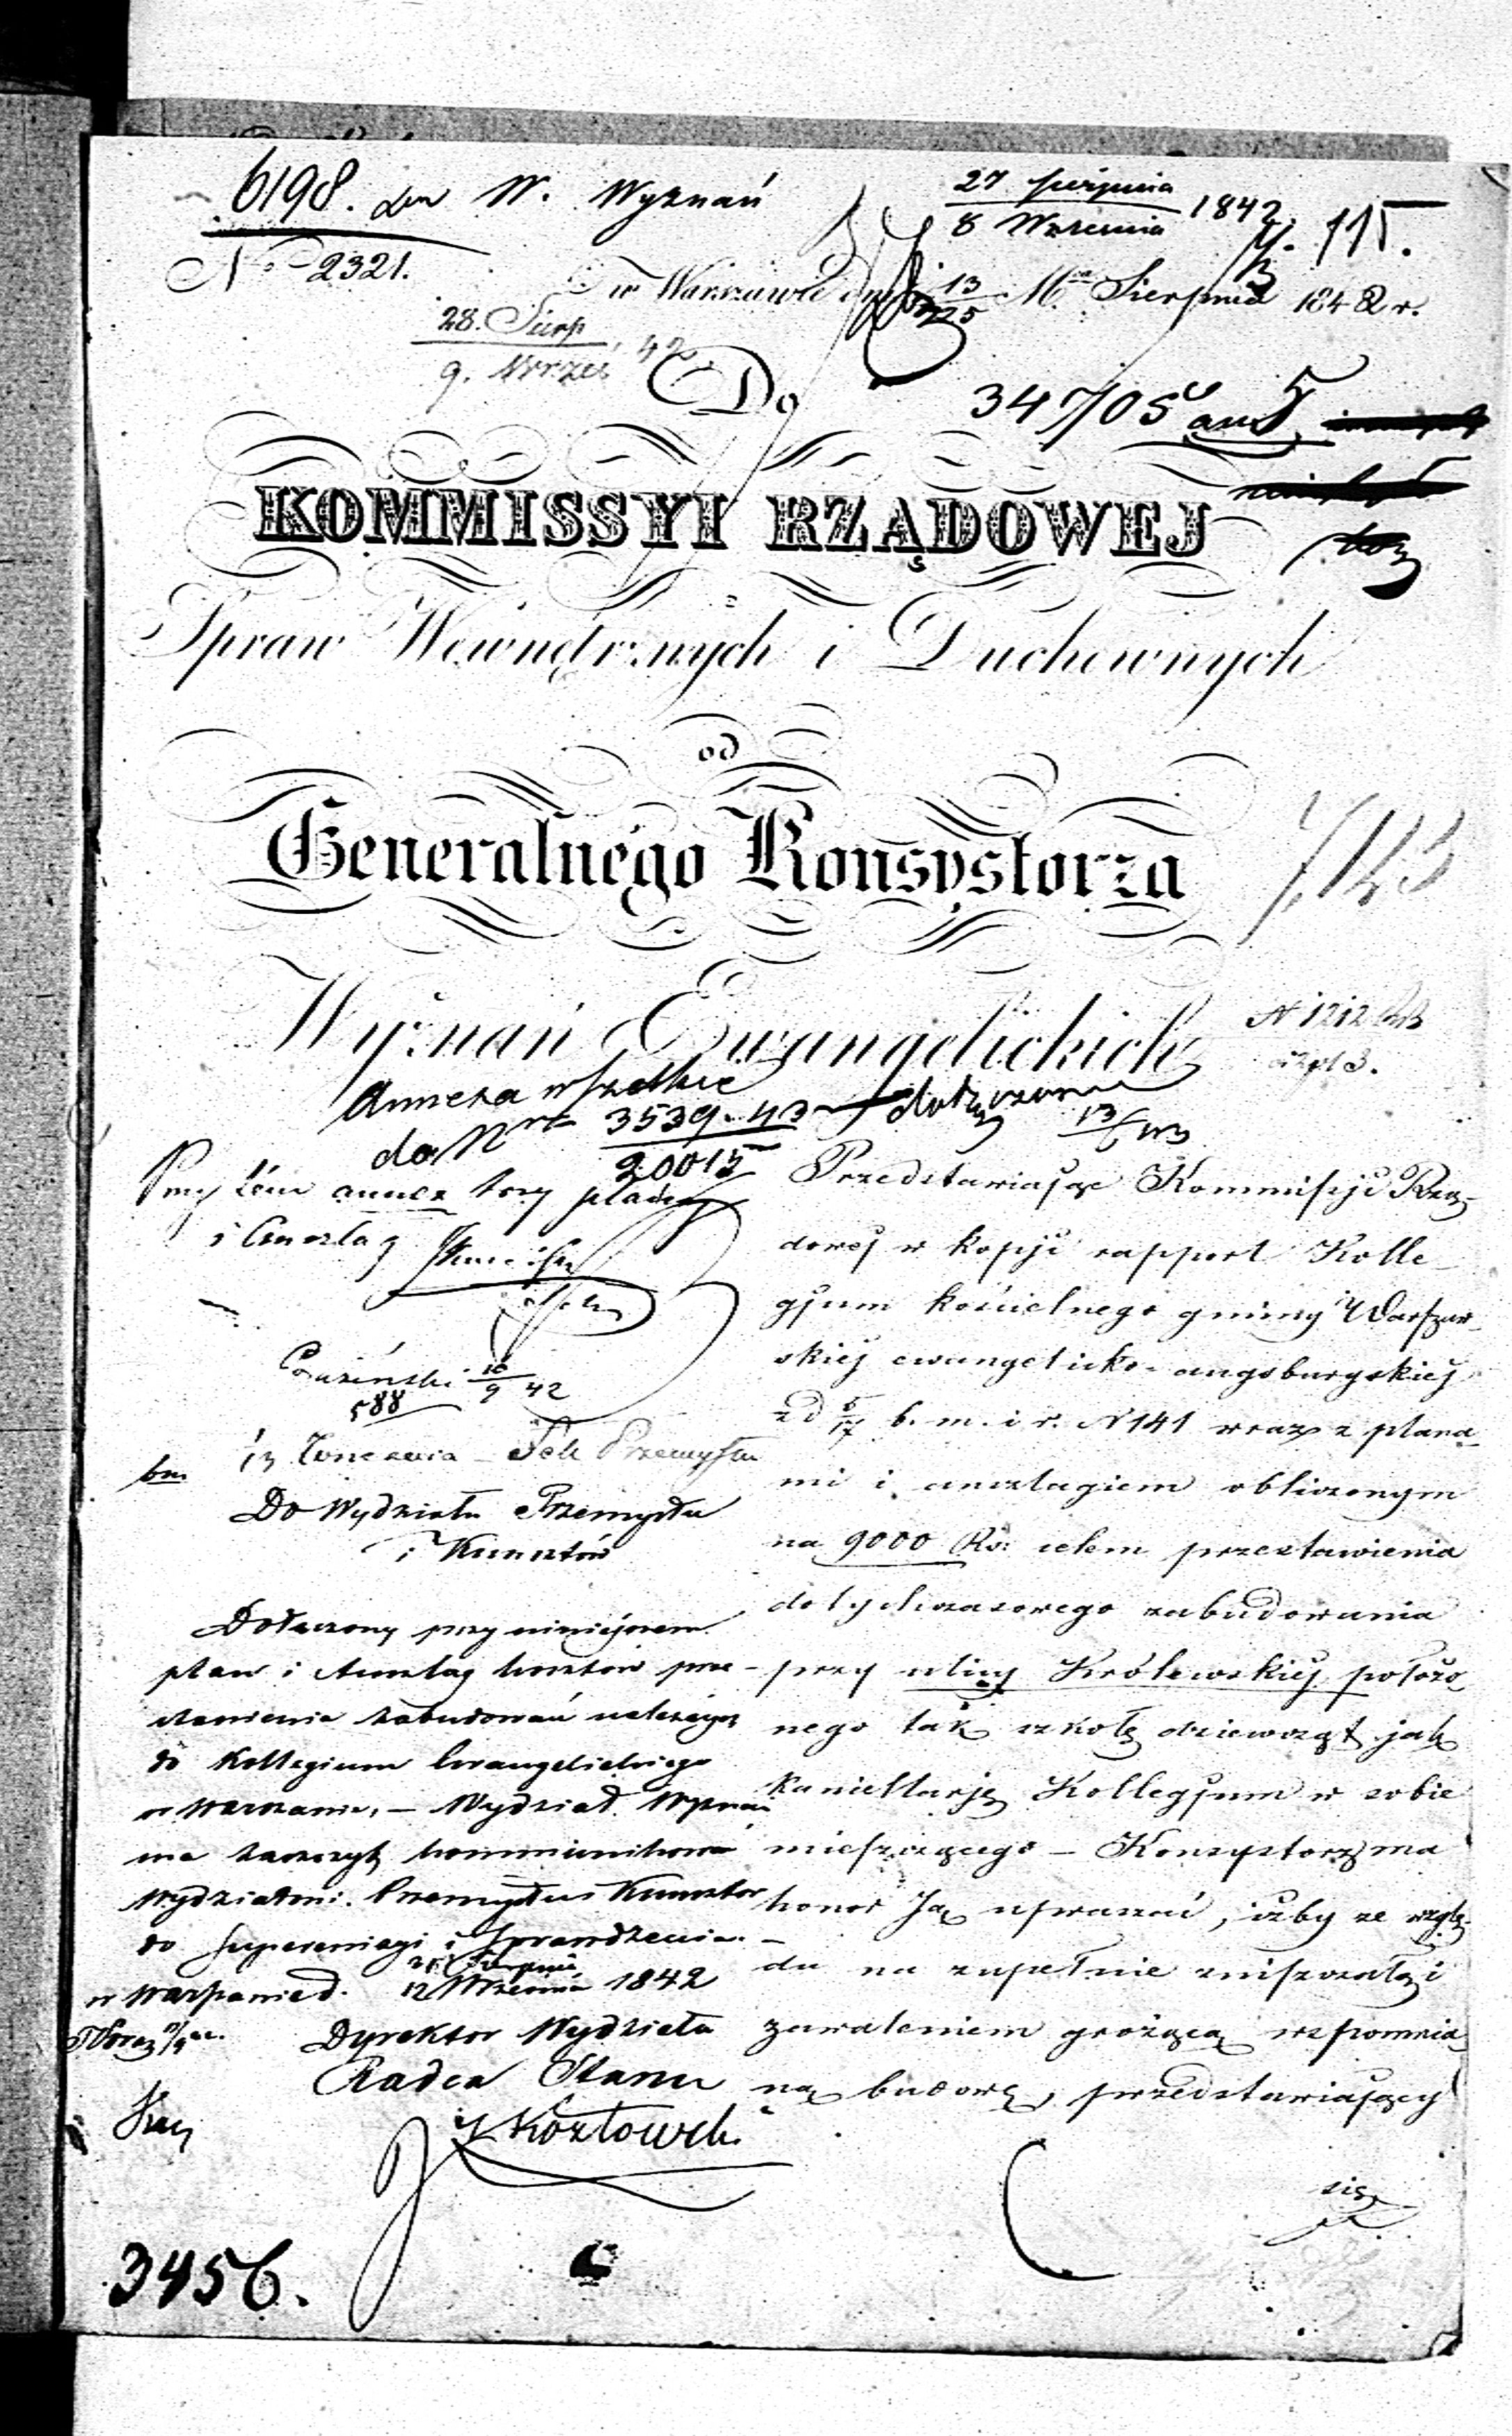 6198. W. Wyznań
27 sierpnia
8 Września 1842
115.
No 2321.
w Warszawie dnia 13/25 Mca Sierpnia 1842 r.
28. Sierp
9. Wrześ. 42
Do
34705
KOMMISSYI RZĄDOWEJ
Spraw Wewnętrznych i Duchownych
od
Generalnego Konsystorza
Wyznań Ewangelickich
N 1212
Annexa wszelkie
do Nru 3539.43 dołączone
20015
Przy tém annex trzy plany
i Anszlag
16/9 42
588
Do Wydziału Przemysłu
i Kunsztów
Dołączony przy niniejszem
plan i Anszlag kosztów prze-
stawienia zabudowań należących
do Kollegium Ewangelickiego
w Warszawie, – Wydział Wyznań
ma zaszczyt kommunikować
Wydziałowi Przemysłu i Kunsztów
do superrewizyi i Sprawdzenia. –
w Warszawie d. 31 Sierpnia
12 Września 1842
Dyrektor Wydziału
Radca Stanu
Kozłowski
3456.
Przedstawiając Kommissyi Rzą-
dowej w kopji rapport Kolle-
gjum kościelnego gminy Warszaw-
skiej ewangelicko-augsburgskiej
z d 5/17 b. m. i r. N 141 wraz z plana-
mi i anszlagiem obliczonym
na 9000 Rs: celem przestawienia
dotychczasowego zabudowania
przy ulicy Królewskiej położo-
nego tak szkołę dziewcząt jak
kancellarję Kollegjum w sobie
mieszczącego – Konsystorz ma
honor Ją upraszać, iżby ze wzglę-
du na zupełnie zniszczałą i
zawaleniem grożącą wspomnia-
ną budowę, przedstawiający
się